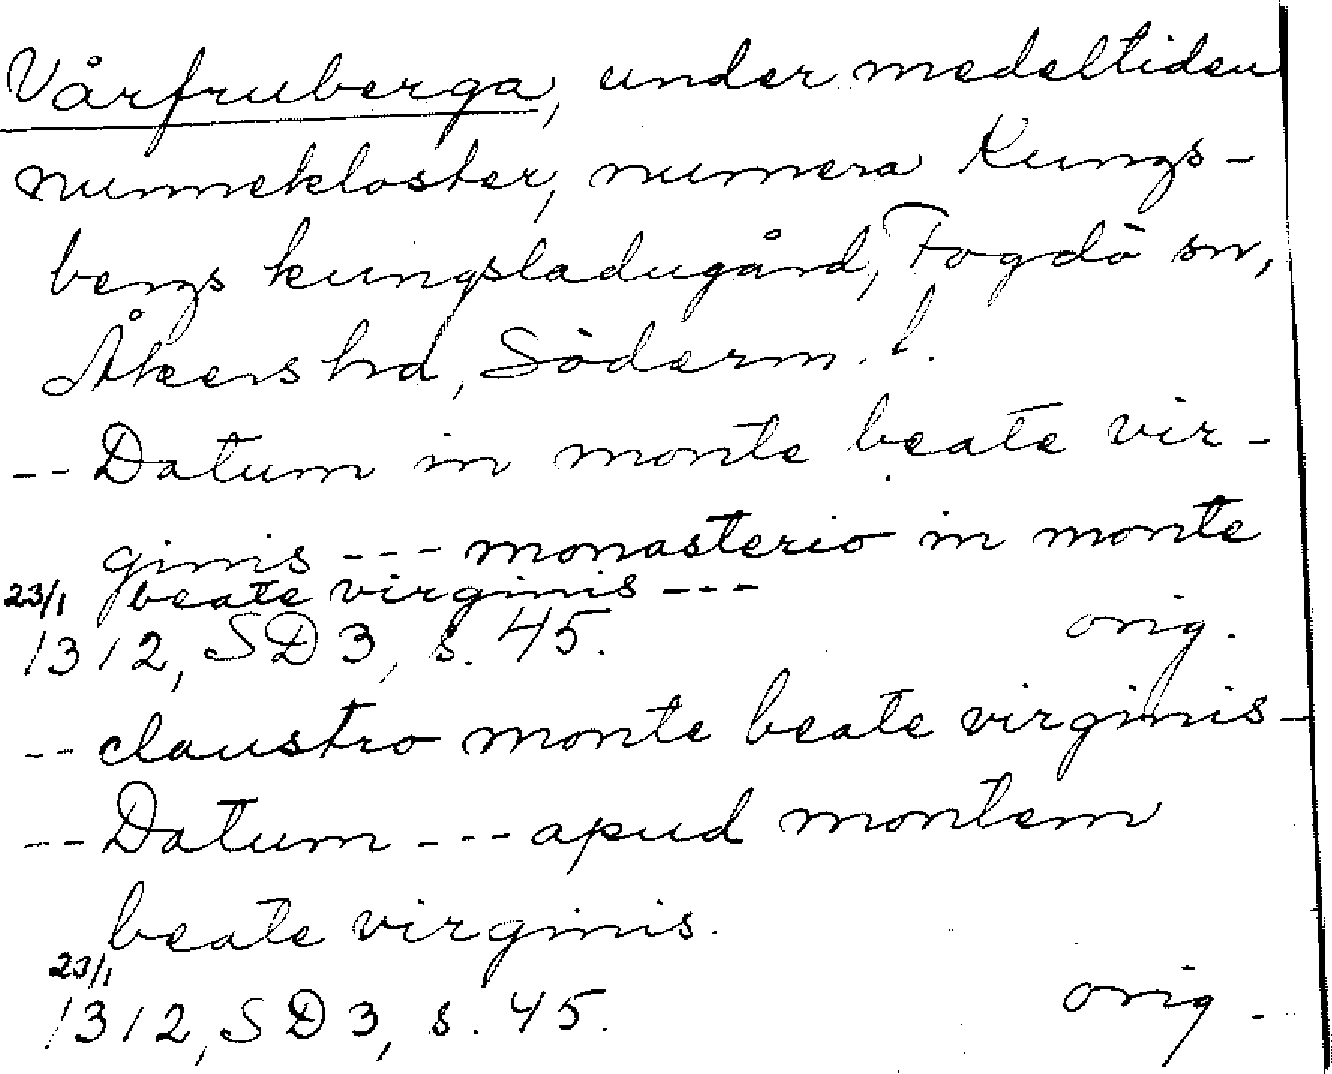 Vårfruberga, under medeltiden
nunnekloster, numera Kungs-
bergs kungsladugård, Fogdö sn,
Åkers hd, Söderm. l.
-- Datum in monte beate vir-
ginis --- monasterio in monte
beate virginis ---
23/1
1312, SD 3, s. 45. orig.
-- claustro monte beate virginis-
-- Datum --- apud montem
beate virginis.
23/1
1312, SD 3, s. 45. orig.